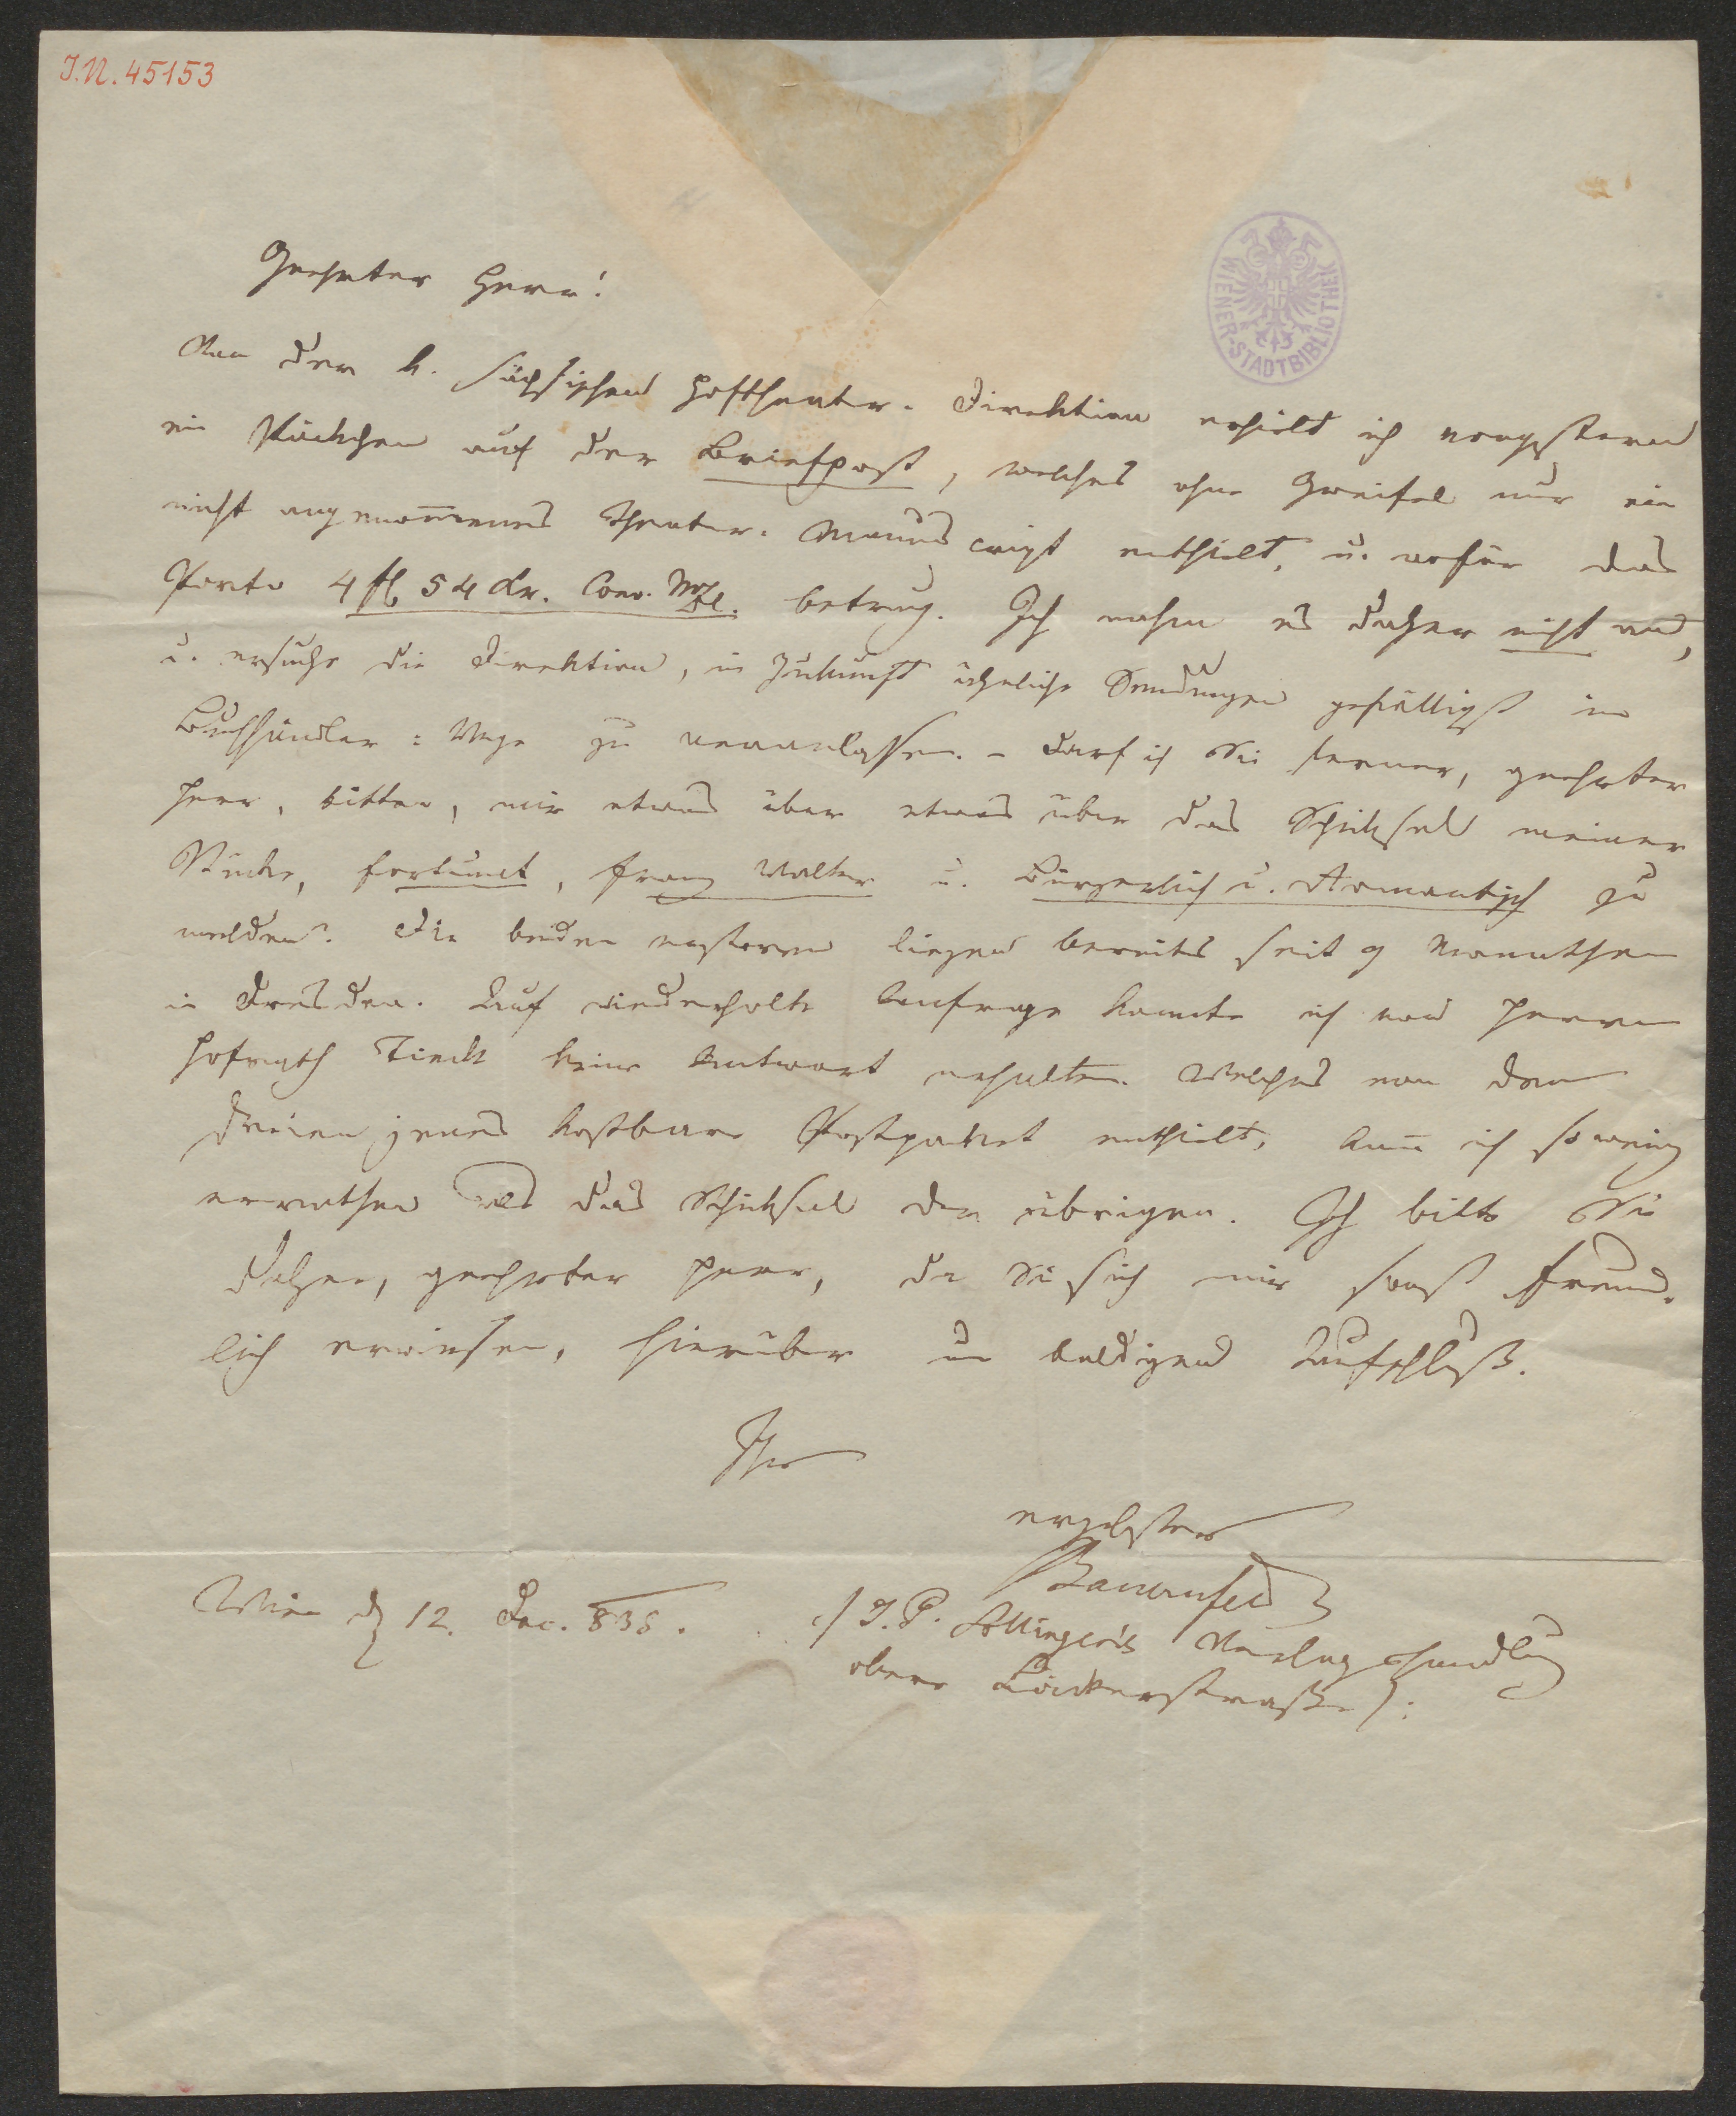 I.N. 45153
WIENER-STADTBIBLIOTHEK
Geehrter Herr!
Von der k. sächsischen Hoftheater-Direktion erhielt ich vorgestern
ein Päckchen auf der Briefpost, welches ohne Zweifel nur ein
nicht angenom̄enes Theater-Manuscript enthielt, u. wofür das
Porto 4 fl 54 kr. Conv. Mze. betrug. Ich nahm es daher nicht an,
u. ersuche die Direktion, in Zukunft ähnliche Sendungen gefälligst im
Buchhändler-Wege zu veranlassen. – Darf ich Sie ferner, geehrter
Herr, bitten, mir etwas über etwas über das Schicksal meiner
Stücke, Fortunat, Franz Walter u. Bürgerlich u. Romantisch zu
melden? Die beiden ersteren liegen bereits seit 9 Monathen
in Dresden. Auf wiederholte Anfrage konnte ich von Herrn
Hofrath Tieck keine Antwort erhalten. Welches von den
dreien jenes kostbare Postpaket enthielt, kan̄ ich so wenig
errathen als das Schicksal der übrigen. Ich bitte Sie
daher, geehrter Herr, da Sie sich mir sonst freund-
lich erwiesen, hierüber um baldigen Aufschluß.
Ihr
ergebster
Bauernfeld
Wien d 12. Dec. 835.
/ J. P. Sollinger's Verlagshandlung
obere Bäckerstraße /: